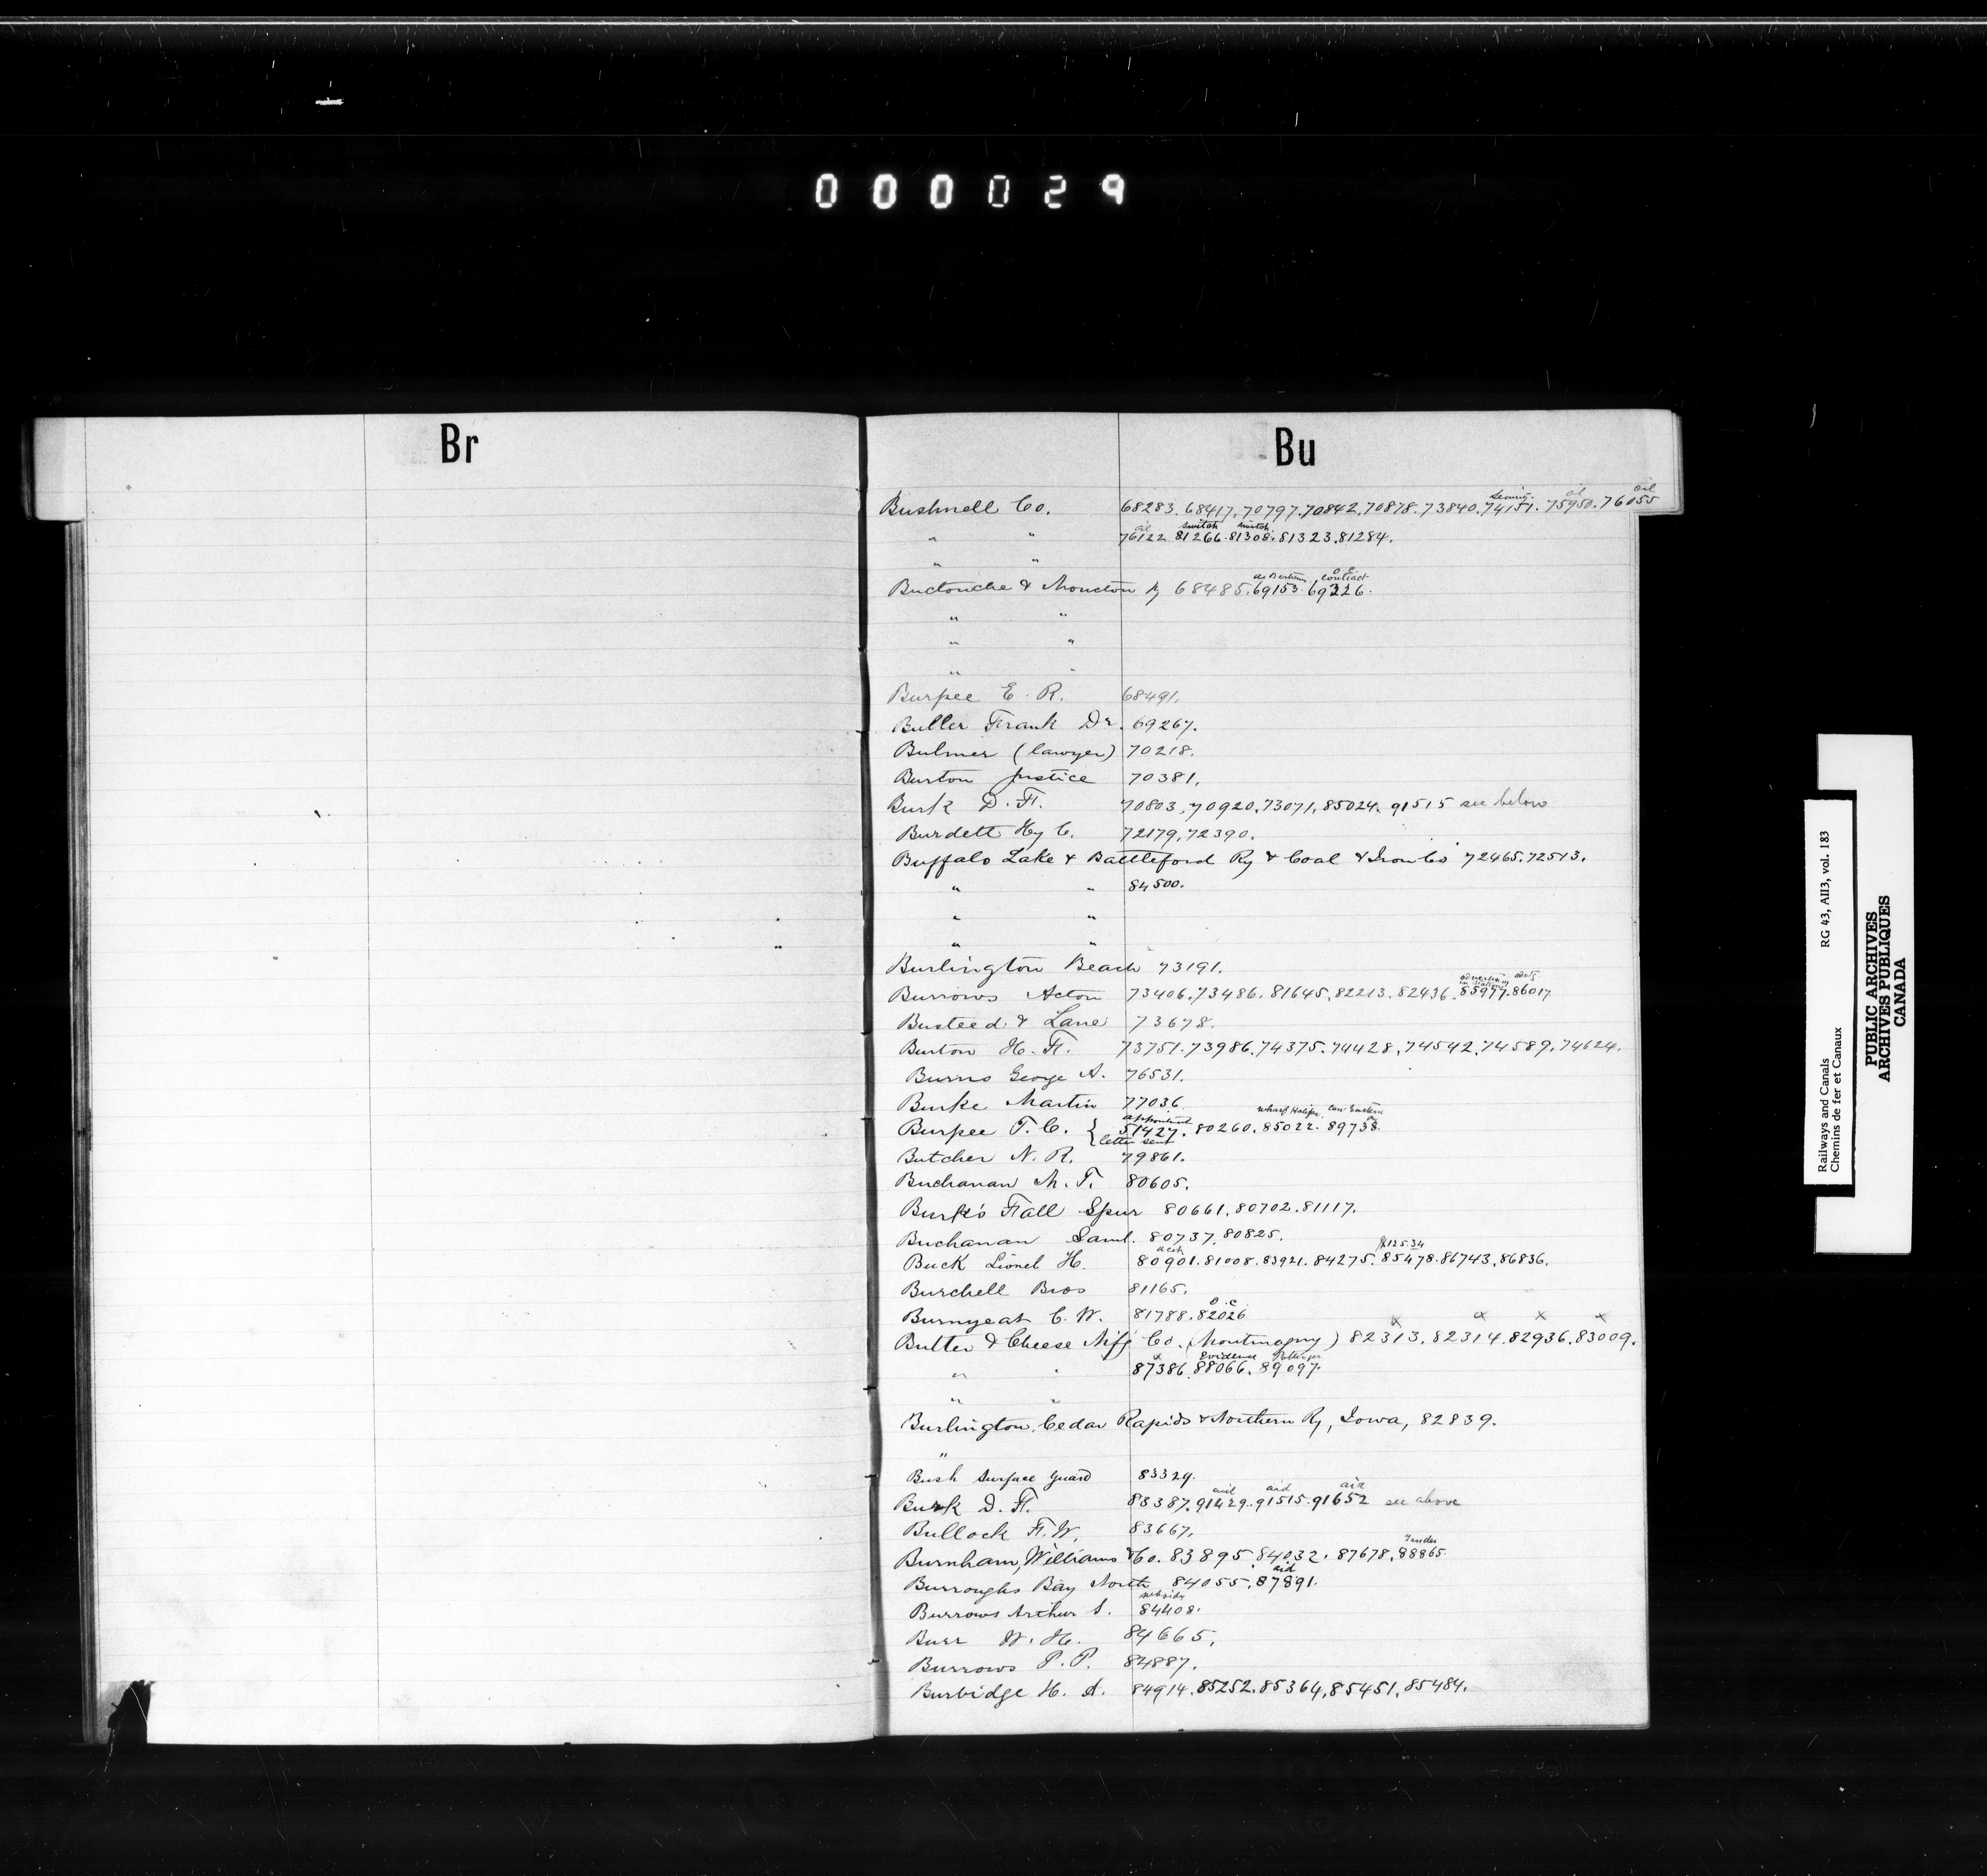 000029
Br
Bu
Bushnell Co. 68283. 68417. 70797. 70842. 70878. 73840. 74151. 75950. 76055
oil oil
" " 76122 81266. 81308. 81323. 81284.
oil switch switch
" "
Buctouche & Moncton Ry 68485. 69153. 69326.
contract
" "
" "
" "
Burpee E. R. 68491.
Buller Frank Dr. 69267.
Bulmer (lawyer) 70218.
Burton Justice 70381.
Burk D. F. 70803. 70920. 73071. 85024. 91515 see below
Burdett Hy C. 72179. 72390.
Buffalo Lake & Battleford Ry & Coal & Iron Co 72465. 72513.
" " 84500.
" "
" "
Burlington Beach 73191.
Burrows Acton 73406. 73486. 81645. 82213. 82436. 85977. 86017
Busteed & Lane 73678.
Burton H. F. 73751. 73986. 74375. 74428. 74542. 74589. 74624.
Burns George A. 76531.
Burke Martin 77036
Burpee T. C. { 51427. 80260. 85022. 89738.
letter sent
Butcher N. R. 79861.
Buchanan M. T. 80605.
Burk's Fall Spur 80661. 80702. 81117.
Buchanan Saml. 80737. 80825.
$125.34
Buck Lionel H. 80901. 81008. 83921. 84275. 85478. 86743. 86836.
Burchell Bros 81165.
O.C.
Burnyeat C. W. 81788. 82026
x x x x
Butter & Cheese Mfg Co. (Montmagny) 82313. 82314. 82936. 83009.
x Evidence Pottinger
" " 87386. 88066. 89097.
" "
Burlington, Cedar Rapids & Northern Ry, Iowa, 82839.
"
Bush Surface Guard 83329.
aid aid aid
Burk D. F. 83387. 91429. 91515. 91652 see above
Bullock F. W. 83667.
Tender
Burnham, Williams & Co. 83895. 84032. 87678. 88865.
aid
Burroughs Bay North 84055. 87891.
subsidy
Burrows Arthur S. 84408.
Burr W. H. 84665.
Burrows P. P. 84887.
Burbidge H. A. 84914. 85252. 85364. 85451. 85484.
Railways and Canals RG 43, AII3, vol. 183
Chemins de fer et Canaux
PUBLIC ARCHIVES
ARCHIVES PUBLIQUES
CANADA